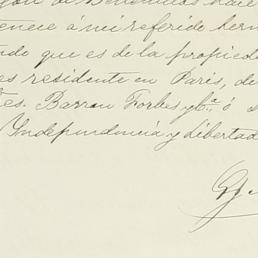 de Benefici hace
enece á mi referido herm
do que es de la propied
es residente en Paris, de
es. Barron Forbes y Ca. ó s
Independencia y Libertad